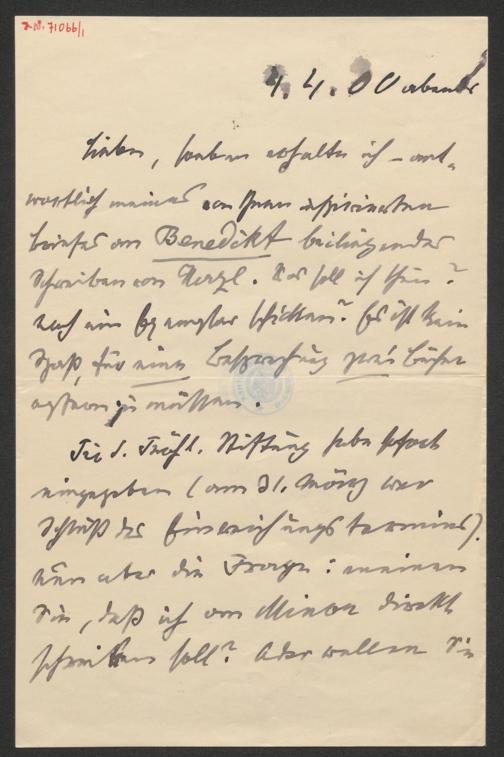 I.N. 71066/1
4. 4. 00 abends
Lieber, soeben erhalte ich – ant-
wortlich meines von Ihnen inspirierten
Briefes an Benedikt beiliegendes
Schreiben von Herzl. Was soll ich thun?
Noch ein Exemplar schicken? Es ist kein
Spaß, für eine Besprechung zwei Bücher
opfern zu müssen.
Für d. Fröhl. Stiftung habe sofort
eingegeben (am 31. März war
Schluß des Einreichungstermines).
Nun aber die Frage: meinen
Sie, daß ich an Minor direkt
schreiben soll? Oder wollen Sie